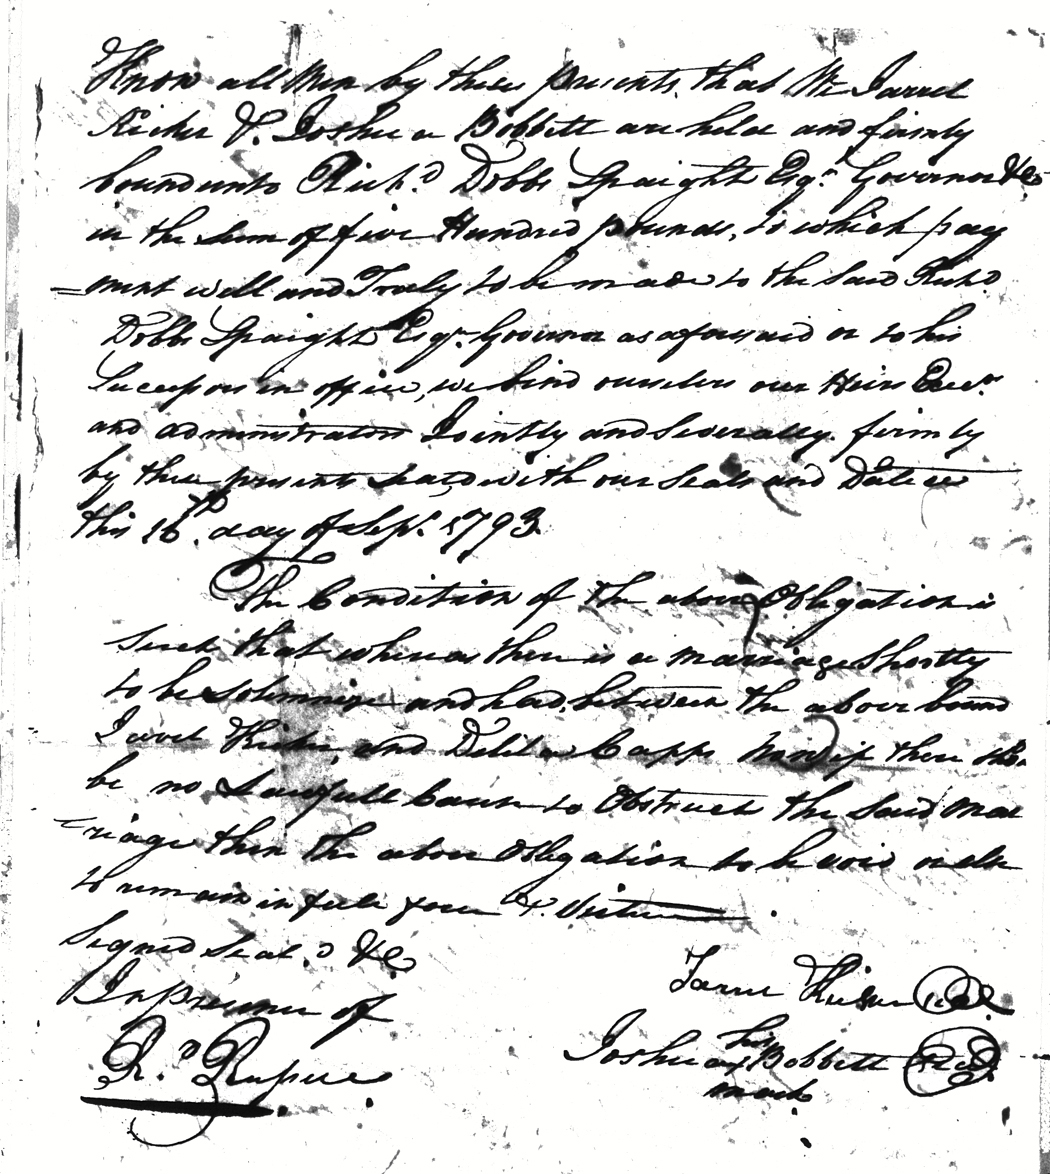 Know all Men by these presents, that We Jarrel
Hicks & Joshua Bobbett are held and firmly
bound unto Rich.d Dobbs Spaight Esqr. Governor &c
in the Sum of five Hundred pounds, to which pay
=ment well and Truly to be made to the Said Rich.d
Dobbs Spaight Esqr. Governor as aforesaid or to his
Successors in office, we bind ourselves our Heirs Execrs.
and administrators Jointly and Severally. firmly
by these presents Seald with our Seals and Dated
this 16th. day of Sepr. 1793.
The Condition of the above Obligation is
Such that whereas there is a marriage Shortly
to be Solemnize and had, between the above bound
Hicks, and Delila Capps Now if there
be no Lawfull Cause to Obstruct the Said Mar
=riage then the above Obligation to be void or else
to remain in full force & Virtue
Signed Seal.d &c
In presence of
Hicks Seal
his
Joshua x Bobbett Seal
mark